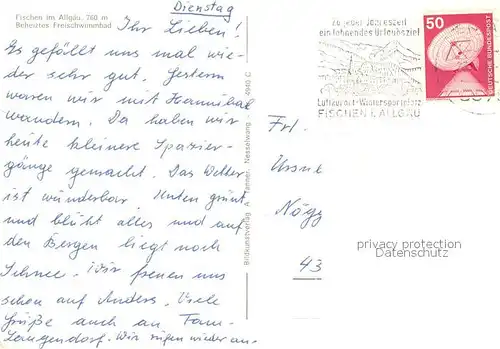 Dienstag
Fischen im Allgäu, 760 m
Beheiztes Freischwimmbad
Ihr Lieben!
Es gefällt uns mal wie-
der sehr gut. Gestern
waren wir mit Hannibal
wandern. Da haben wir
heute kleinere Spazier-
gänge gemacht. Das Wetter
ist wunderbar. Unten grünt
und blüht alles und auf
den Bergen liegt noch
Schnee. Wir freuen uns
schon auf Anders. Viele
Grüße auch an Fam.
Langendorf. Wir rufen wieder an.
Bildkunstverlag A. Tanner, Nesselwang - 4949 C
Zu jeder Jahreszeit
ein lohnendes Urlaubsziel
Luftkurort - Wintersportplatz
FISCHEN I. ALLGÄU
50
DEUTSCHE BUNDESPOST
Frl.
43
privacy protection
Datenschutz